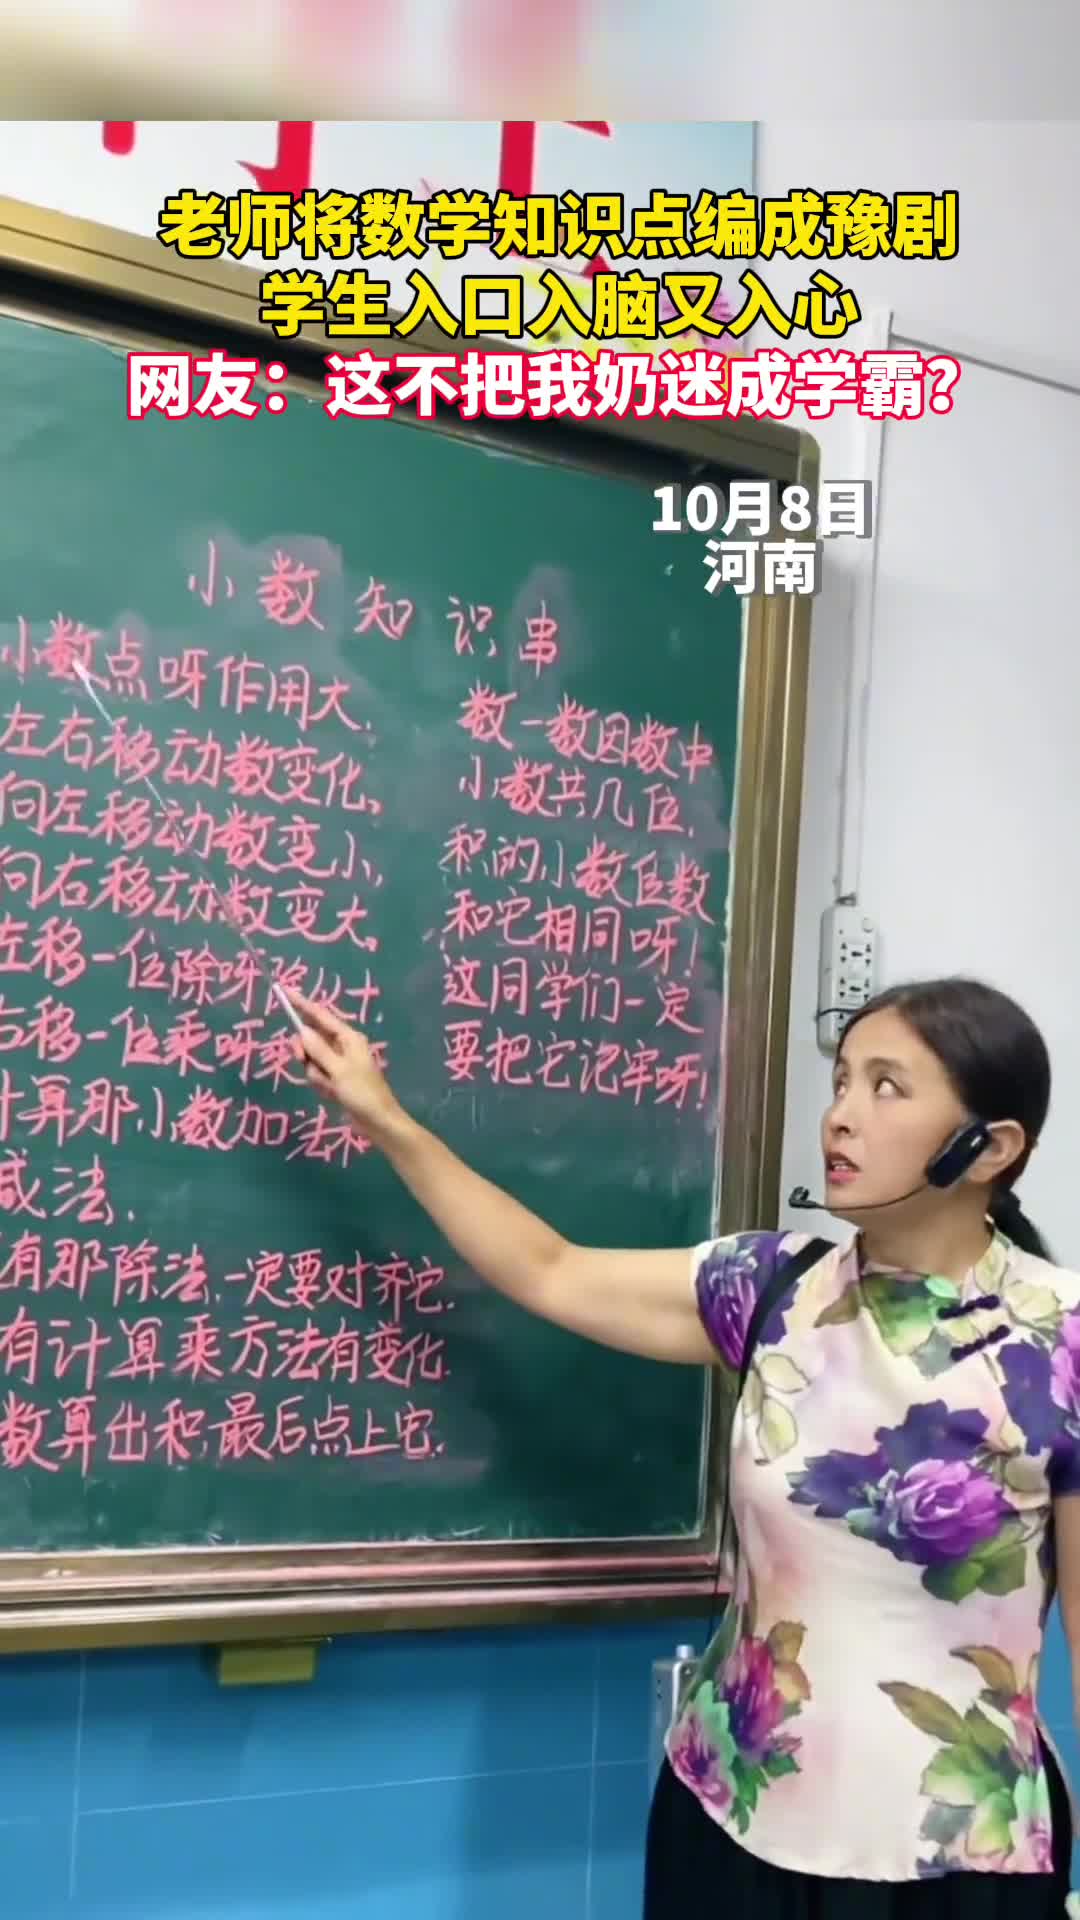 老师将数学知识点编成豫剧
学生入口入脑又入心
网友：这不把我奶迷成学霸？
10月8日
河南
小数知识串
小数点呀作用大.
左右移动数变化,
向左移动数变小,
向右移动数变大.
左移一位除呀除以十.
右移一位乘呀乘
计算那小数加法和
减法.
有那除法.一定要对齐它.
有计算乘方法有变化.
数算出积,最后点上它.
数一数因数中
小数共几位.
积的小数位数
和它相同呀!
这同学们一定
要把它记牢呀!